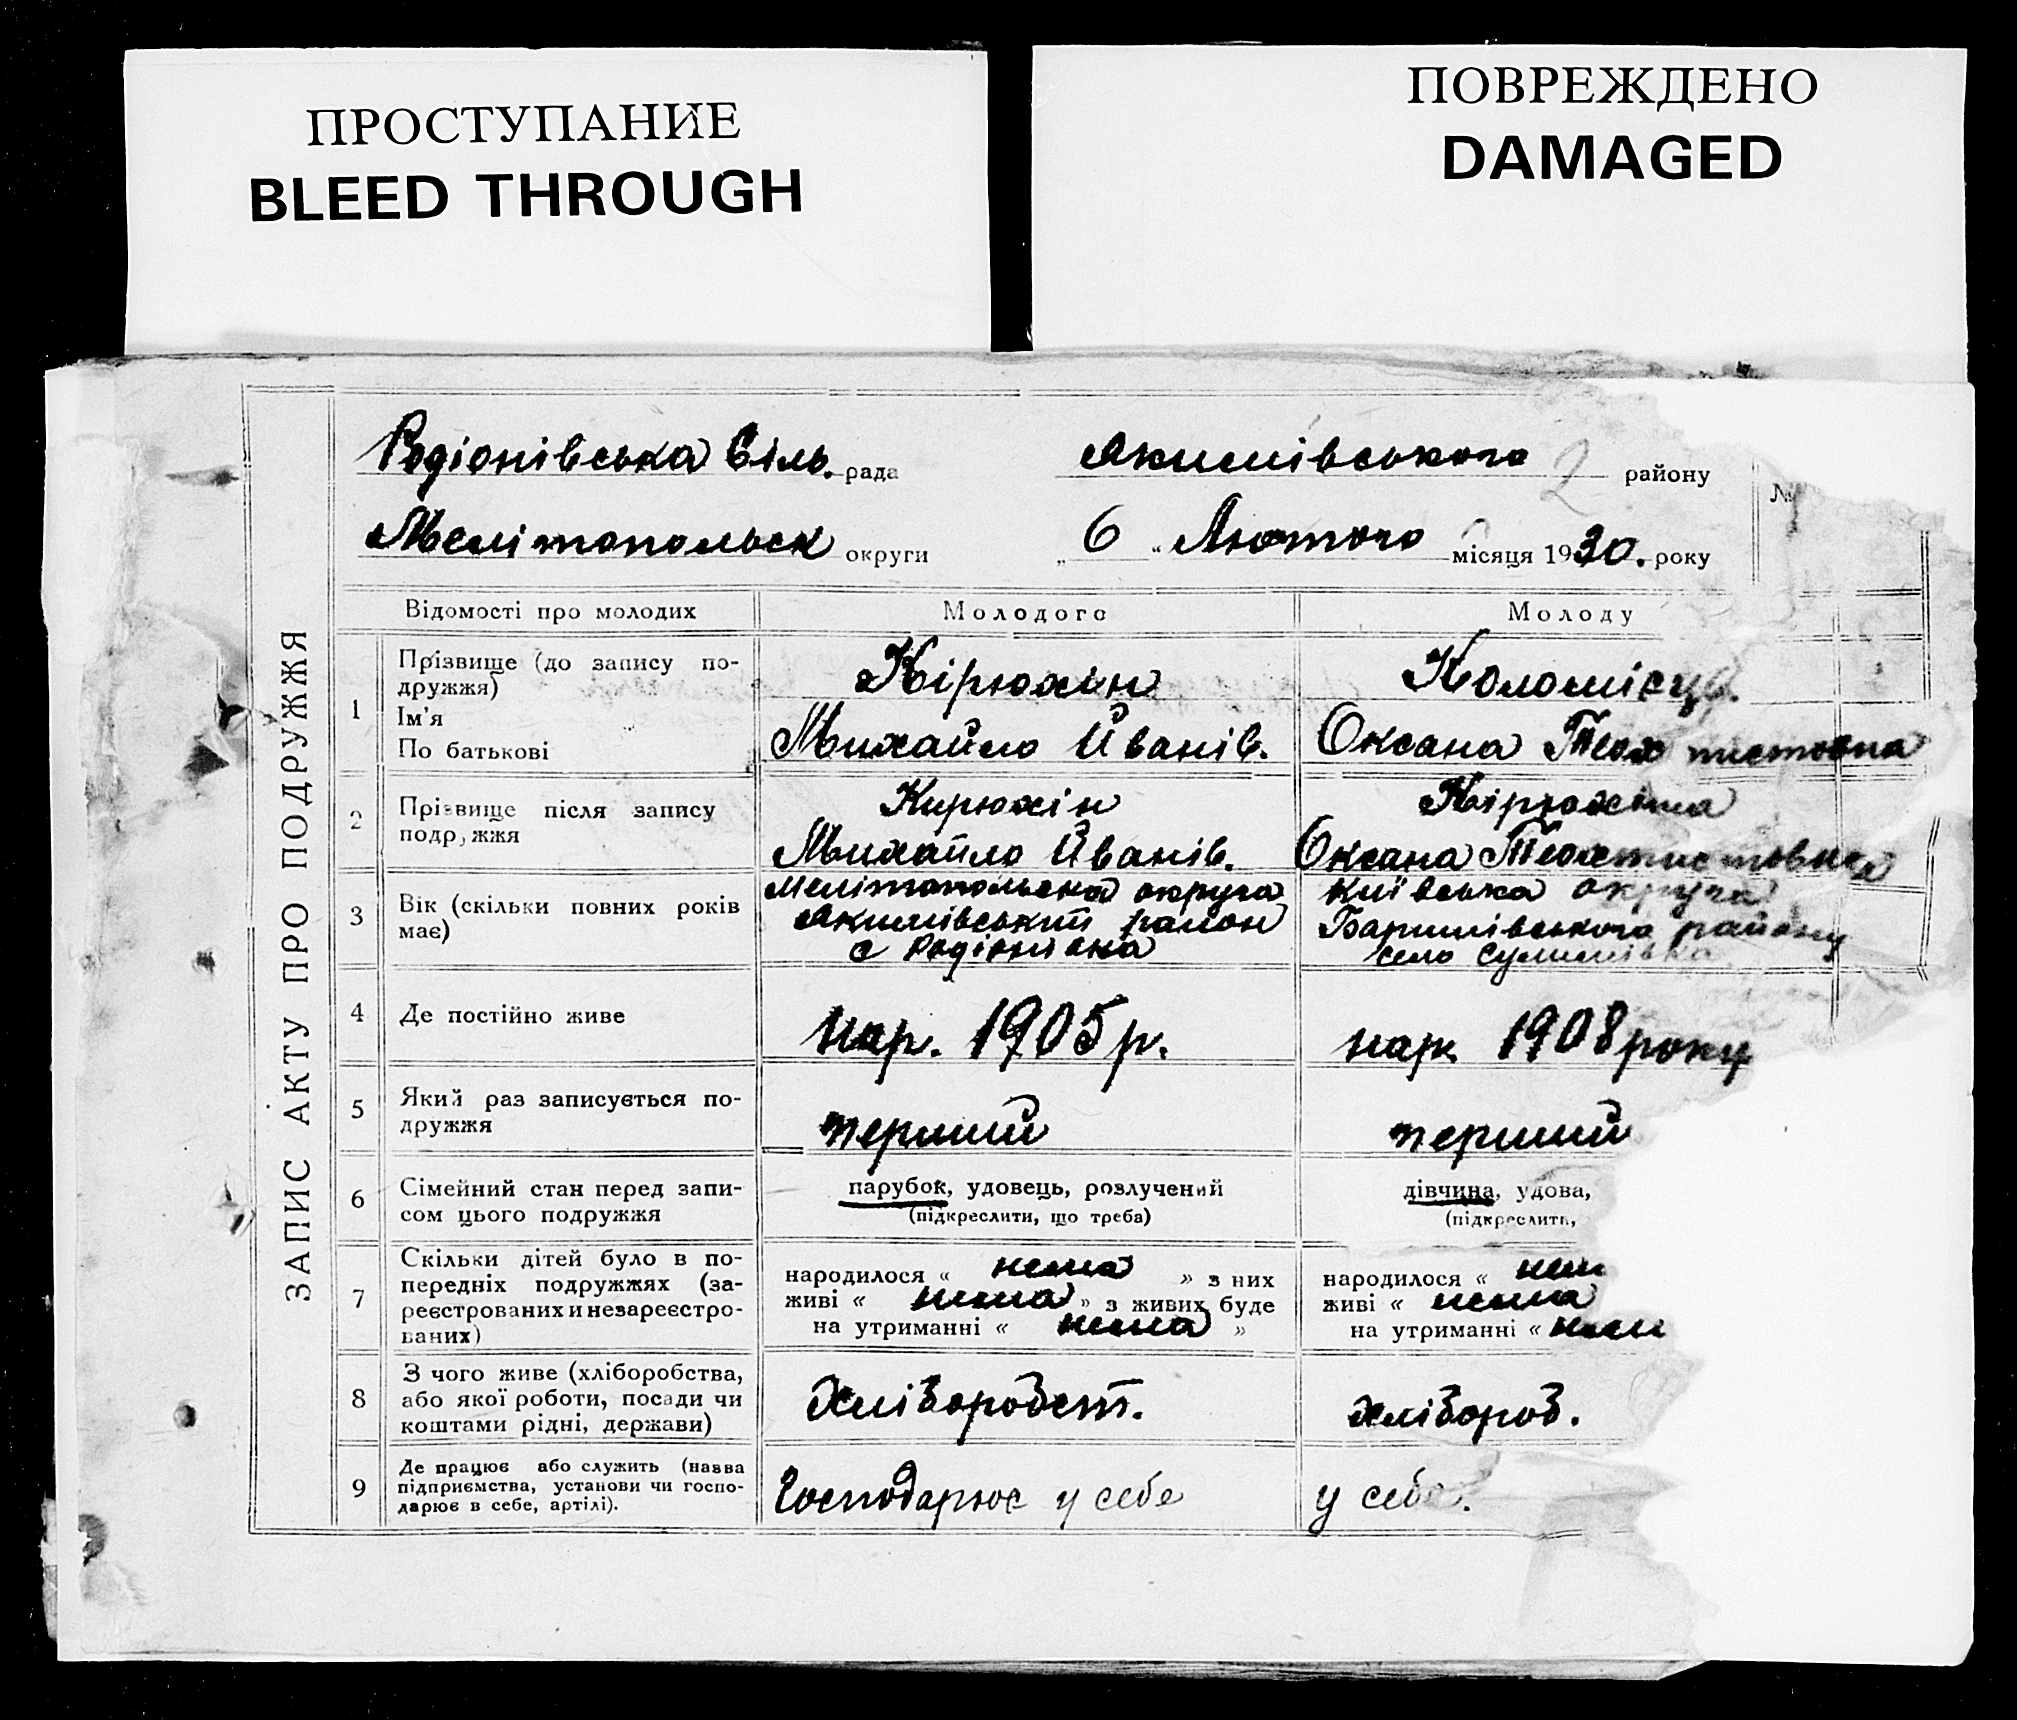 ПРОСТУПАНИЕ
BLEED THROUGH
ПОВРЕЖДЕНО
DAMAGED
ЗАПИС АКТУ ПРО ПОДРУЖЖЯ
Родіонівська Сіль. рада
Акимівського 2 району
№
Мелітопольск округи
„ 6 “ Лютого місяця 1930. року
Відомості про молодих
Молодого
Молоду
1
Прізвище (до запису по-
дружжя)
Ім'я
По батькові
Кірюхін
Михайло Йванів.
Коломієць.
Оксана Теохтистовна
2
Прізвище після запису
подружжя
Кирюхін
Михайло Йванів.
Кірюхіна
Оксана Теохтистовна
3
Вік (скільки повних років
має)
Мелітопольска округа
Акимівський район
с Родіонівка
Київська округа
Баришівського району
село Сулимівка
4
Де постійно живе
нар. 1905 р.
нар. 1908 року
5
Який раз записується по-
дружжя
перший
перший
6
Сімейний стан перед запи-
сом цього подружжя
парубок, удовець, розлучений
(підкреслити, що треба)
дівчина, удова,
(підкреслити,
7
Скільки дітей було в по-
передніх подружжях (за-
реєстрованих и незареєстро-
ваних)
народилося « нема » з них
живі « нема » з живих буде
на утриманні « нема »
народилося « нем
живі « нема
на утриманні « нем
8
З чого живе (хліборобства,
або якої роботи, посади чи
коштами рідні, держави)
Хліборобст.
хлібороб.
9
Де працює або служить (назва
підприємства, установи чи госпо-
дарює в себе, артілі).
Господарює у себе
у себе.